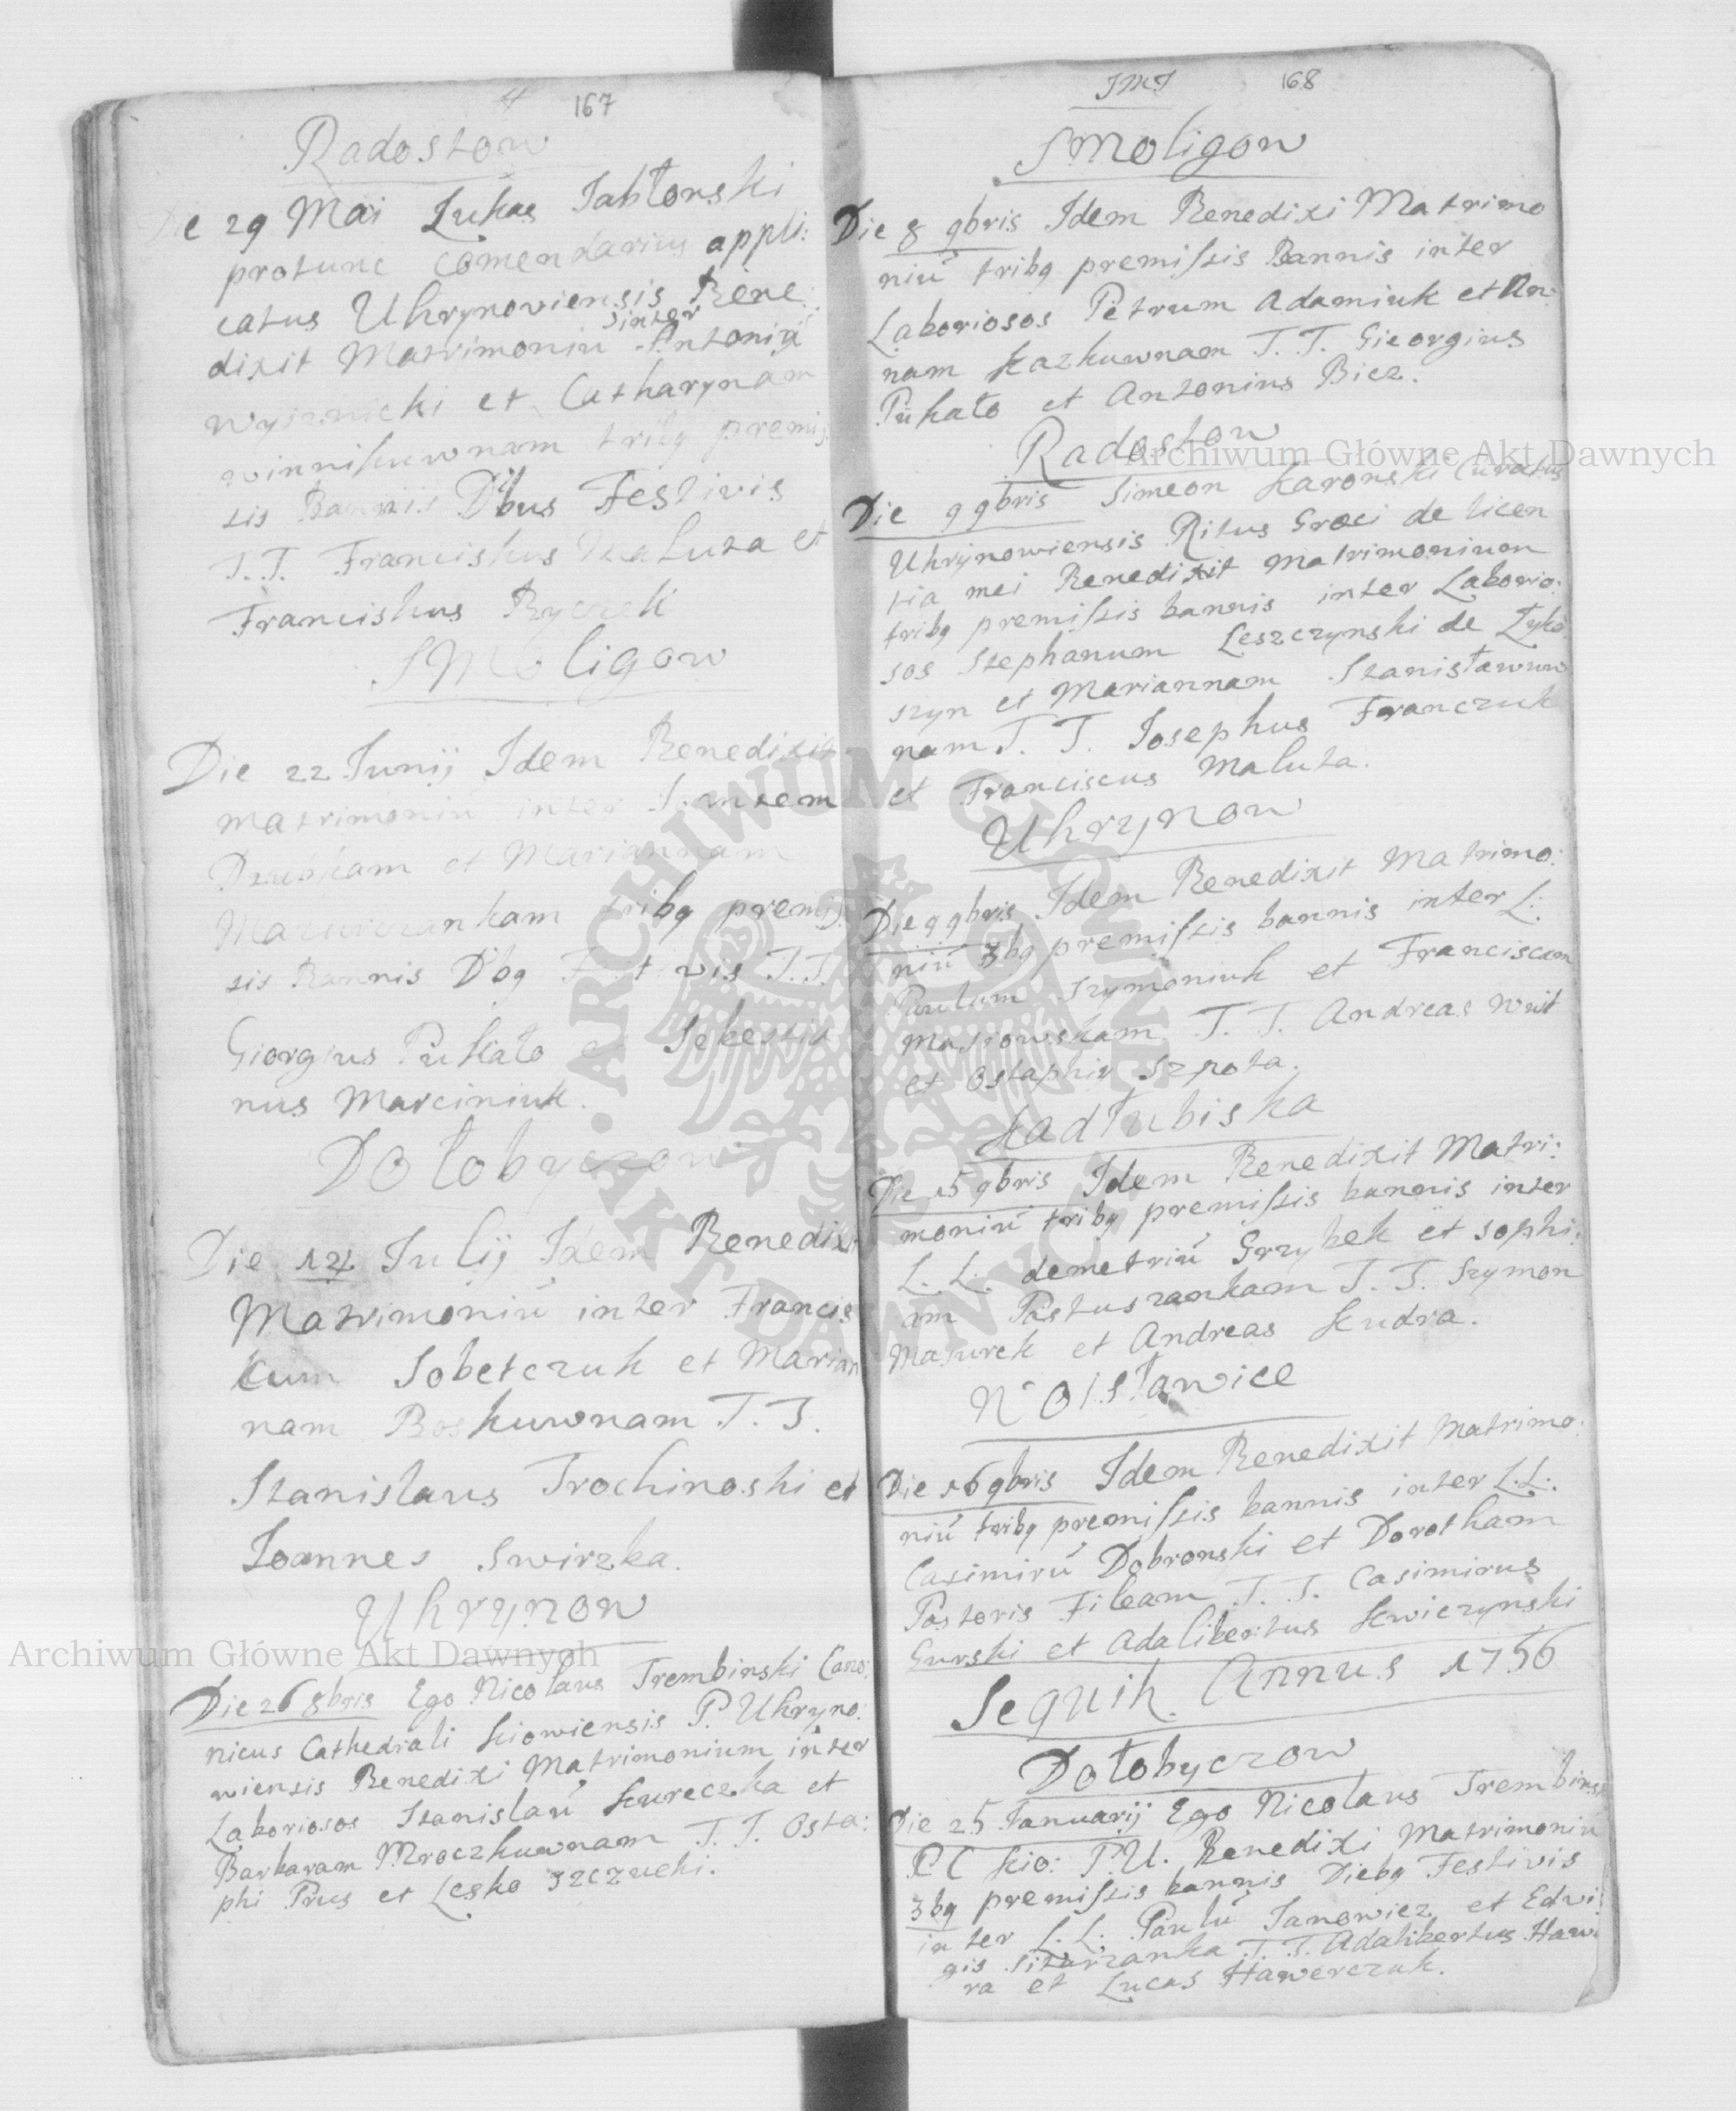 167
Radostow
Die 29 Mai Lukas Jabłonski
protunc comendarius appli:
catus Uhrynoviensis Bene:
dixit Matrimoniu inter Antoniu
et Catharynam
tribq premis
sis Bannis Dbus Festivis
T.T. Franciskus Maluta et
Franciskus Ryczek
SMoligow
Die 22 Junij Idem Benedixit
matrimoniu inter
et Mariannam
tribq premis
sis Bannis Dbq Festivis T.T.
Giorgius Pukało et Sebestia
nus Marciniuk.
Dołobyczow
Die 14 Julij Idem Benedixit
Matrimoniu inter Francis
cum Sobetczuk et Marian
nam Boskuwnam T.T.
Stanislaus Trochinoski et
Joannes Swirzka.
Uhrynow
Die 26 8bris Ego Nicolaus Trembinski Cano:
nicus Cathedrali Kiowiensis P. Uhryno:
wiensis Benedixi Matrimonium inter
Laboriosos Stanislau Kureczka et
Barbaram Mroczkuwnam T.T. Osta:
phi Prus et Lesko Szczucki.
JMJ 168
SMoligow
Die 8 9bris Idem Benedixi Matrimo
niu tribq premissis Bannis inter
Laboriosos Petrum Adamiuk et An:
nam Kazkuwnam T.T. Gieorgius
Pukało et Antonius Bicz.
Radostow
Die 9 9bris Simeon Karonski Curatus
Uhrynowiensis Ritus Græci de licen
tia mei Benedixit matrimonium
tribq premissis bannis inter Laborio:
sos Stephanum Leszczynski de Łyko
szyn et Mariannam Stanisławuw
nam T.T. Josephus Franczuk
et Franciscus Maluta.
Uhrynow
Die 9 9bris Idem Benedixit Matrimo:
niu 3bq premissis bannis inter L:
Paulum Szymoniuk et Franciscam
Masiowskam T.T. Andreas Wuit
et Ostaphir Szpota.
Kadłubiska
Die 15 9bris Idem Benedixit Matri:
moniu tribq premissis bannis inter
L.L. demetriu Grzybek et Sophi:
am Pastuszankam T.T. Szymon
Masurek et Andreas Kudra.
Die 16 9bris Idem Benedixit Matrimo:
niu tribq premissis bannis inter L.L.
Casimiru Dobronski et Dorotham
Pastoris Fileam T.T. Casimirus
Gurski et Adalibertus Kwiczynski
Sequit. Annus 1756
Dołobyczow
Die 25 Januarij Ego Nicolaus Trembinski
P C Kio: P.U. Benedixi Matrimoniu
3bq premissis bannis Diebq Festivis
inter L.L. Paulu Janowicz et Edwi
gis T.T. Adalibertus Haw
ra et Lucas Hawerczuk.
Archiwum Główne Akt Dawnych
Archiwum Główne Akt Dawnych
ARCHIWUM GŁÓWNE AKT DAWNYCH